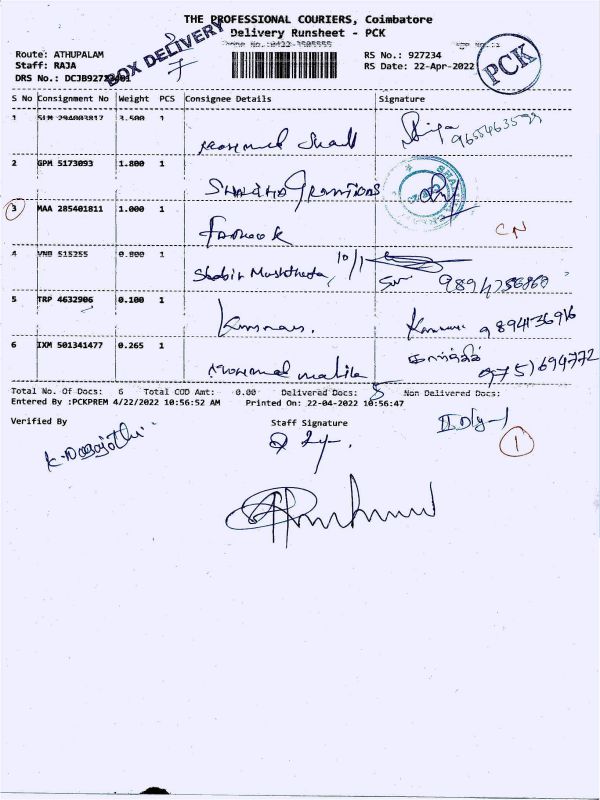 THE PROFESSIONAL COURIERS, Coimbatore
Delivery Runsheet - PCK
Phone No.:0422-3505555
BOX DELIVERY
7
PCK
Route: ATHUPALAM
Staff: RAJA
RS No.: 927234
RS Date: 22-Apr-2022
S No Consignment No Weight PCS Consignee Details Signature
1 SLM 294003817 3.500 1
2 GPM 5173093 1.800 1
3 MAA 285401811 1.000 1 Farook CN
4 VNB 515255 0.800 1 10/1 9894756868
5 TRP 4632906 0.100 1 Kannan. 9894136916
6 IXM 501341477 0.265 1 Mohamed malik கார்த்திக் 9751694772
Total No. Of Docs: 6 Total COD Amt: 0.00 Delivered Docs: 5 Non Delivered Docs:
Entered By :PCKPREM 4/22/2022 10:56:52 AM Printed On: 22-04-2022 10:56:47
Verified By Staff Signature
II Dly-1
1